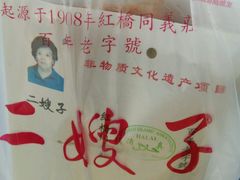 起源于1908年紅橋同義莊
百年老字號
非物质文化遗产项目
二嫂子
二嫂子
HALAL